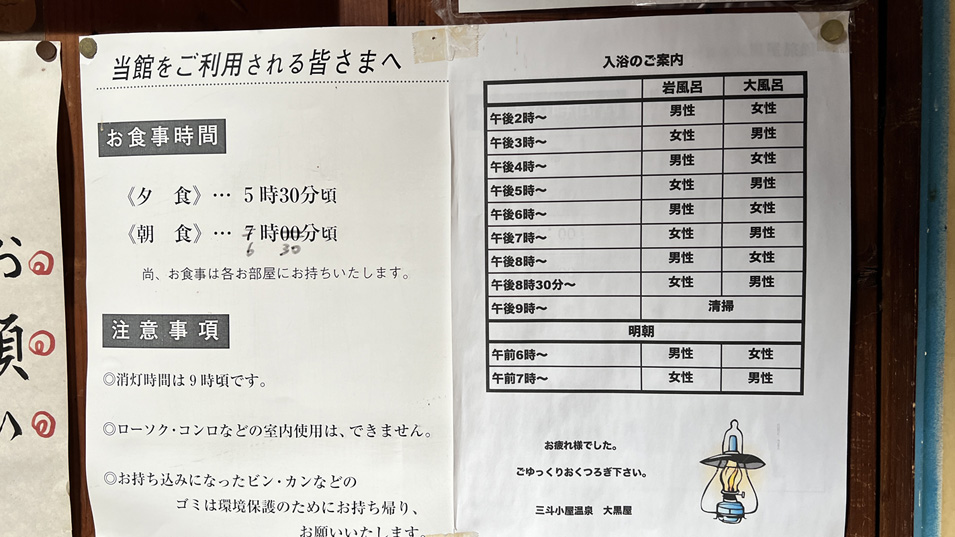 お
願
い
当館をご利用される皆さまへ
お食事時間
《夕 食》… 5時30分頃
《朝 食》… 7時00分頃
6 30
尚、お食事は各お部屋にお持ちいたします。
注意事項
◎消灯時間は9時頃です。
◎ローソク・コンロなどの室内使用は、できません。
◎お持ち込みになったビン・カンなどの
ゴミは環境保護のためにお持ち帰り、
お願いいたします。
入浴のご案内
岩風呂 大風呂
午後2時〜 男性 女性
午後3時〜 女性 男性
午後4時〜 男性 女性
午後5時〜 女性 男性
午後6時〜 男性 女性
午後7時〜 女性 男性
午後8時〜 男性 女性
午後8時30分〜 女性 男性
午後9時〜 清掃
明朝
午前6時〜 男性 女性
午前7時〜 女性 男性
お疲れ様でした。
ごゆっくりおくつろぎ下さい。
三斗小屋温泉 大黒屋